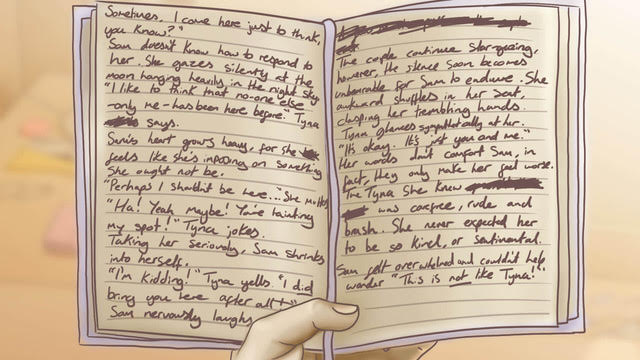 Sometimes, I come here just to think,
you know?"
Sam doesn't know how to respond to
her. She gazes silently at the
moon hanging heavily in the night sky.
"I like to think that no-one else
-only me-has been here before." Tyna
says.
Sam's heart grows heavy, for she
feels like she's imposing on something
she ought not be.
"Perhaps I shouldn't be here..." She mutters
"Ha! Yeah maybe! You're tainting
my spot!" Tyna jokes.
Taking her seriously, Sam shrinks
into herself.
"I'm kidding!" Tyna yells. "I did
bring you here after all!"
Sam nervously laughs
The couple continue star-gazing,
however, the silence soon becomes
unbearable for Sam to endure. She
awkward shuffles in her seat,
clasping her trembling hands.
Tyna glances sympathetically at her.
"It's okay. It's just you and me."
Her words don't comfort Sam, in
fact, they only make her feel worse.
The Tyna she knew
was carefree, rude and
brash. She never expected her
to be so kind, or sentimental.
Sam felt overwhelmed and couldn't help
wonder "This is not like Tyna!"